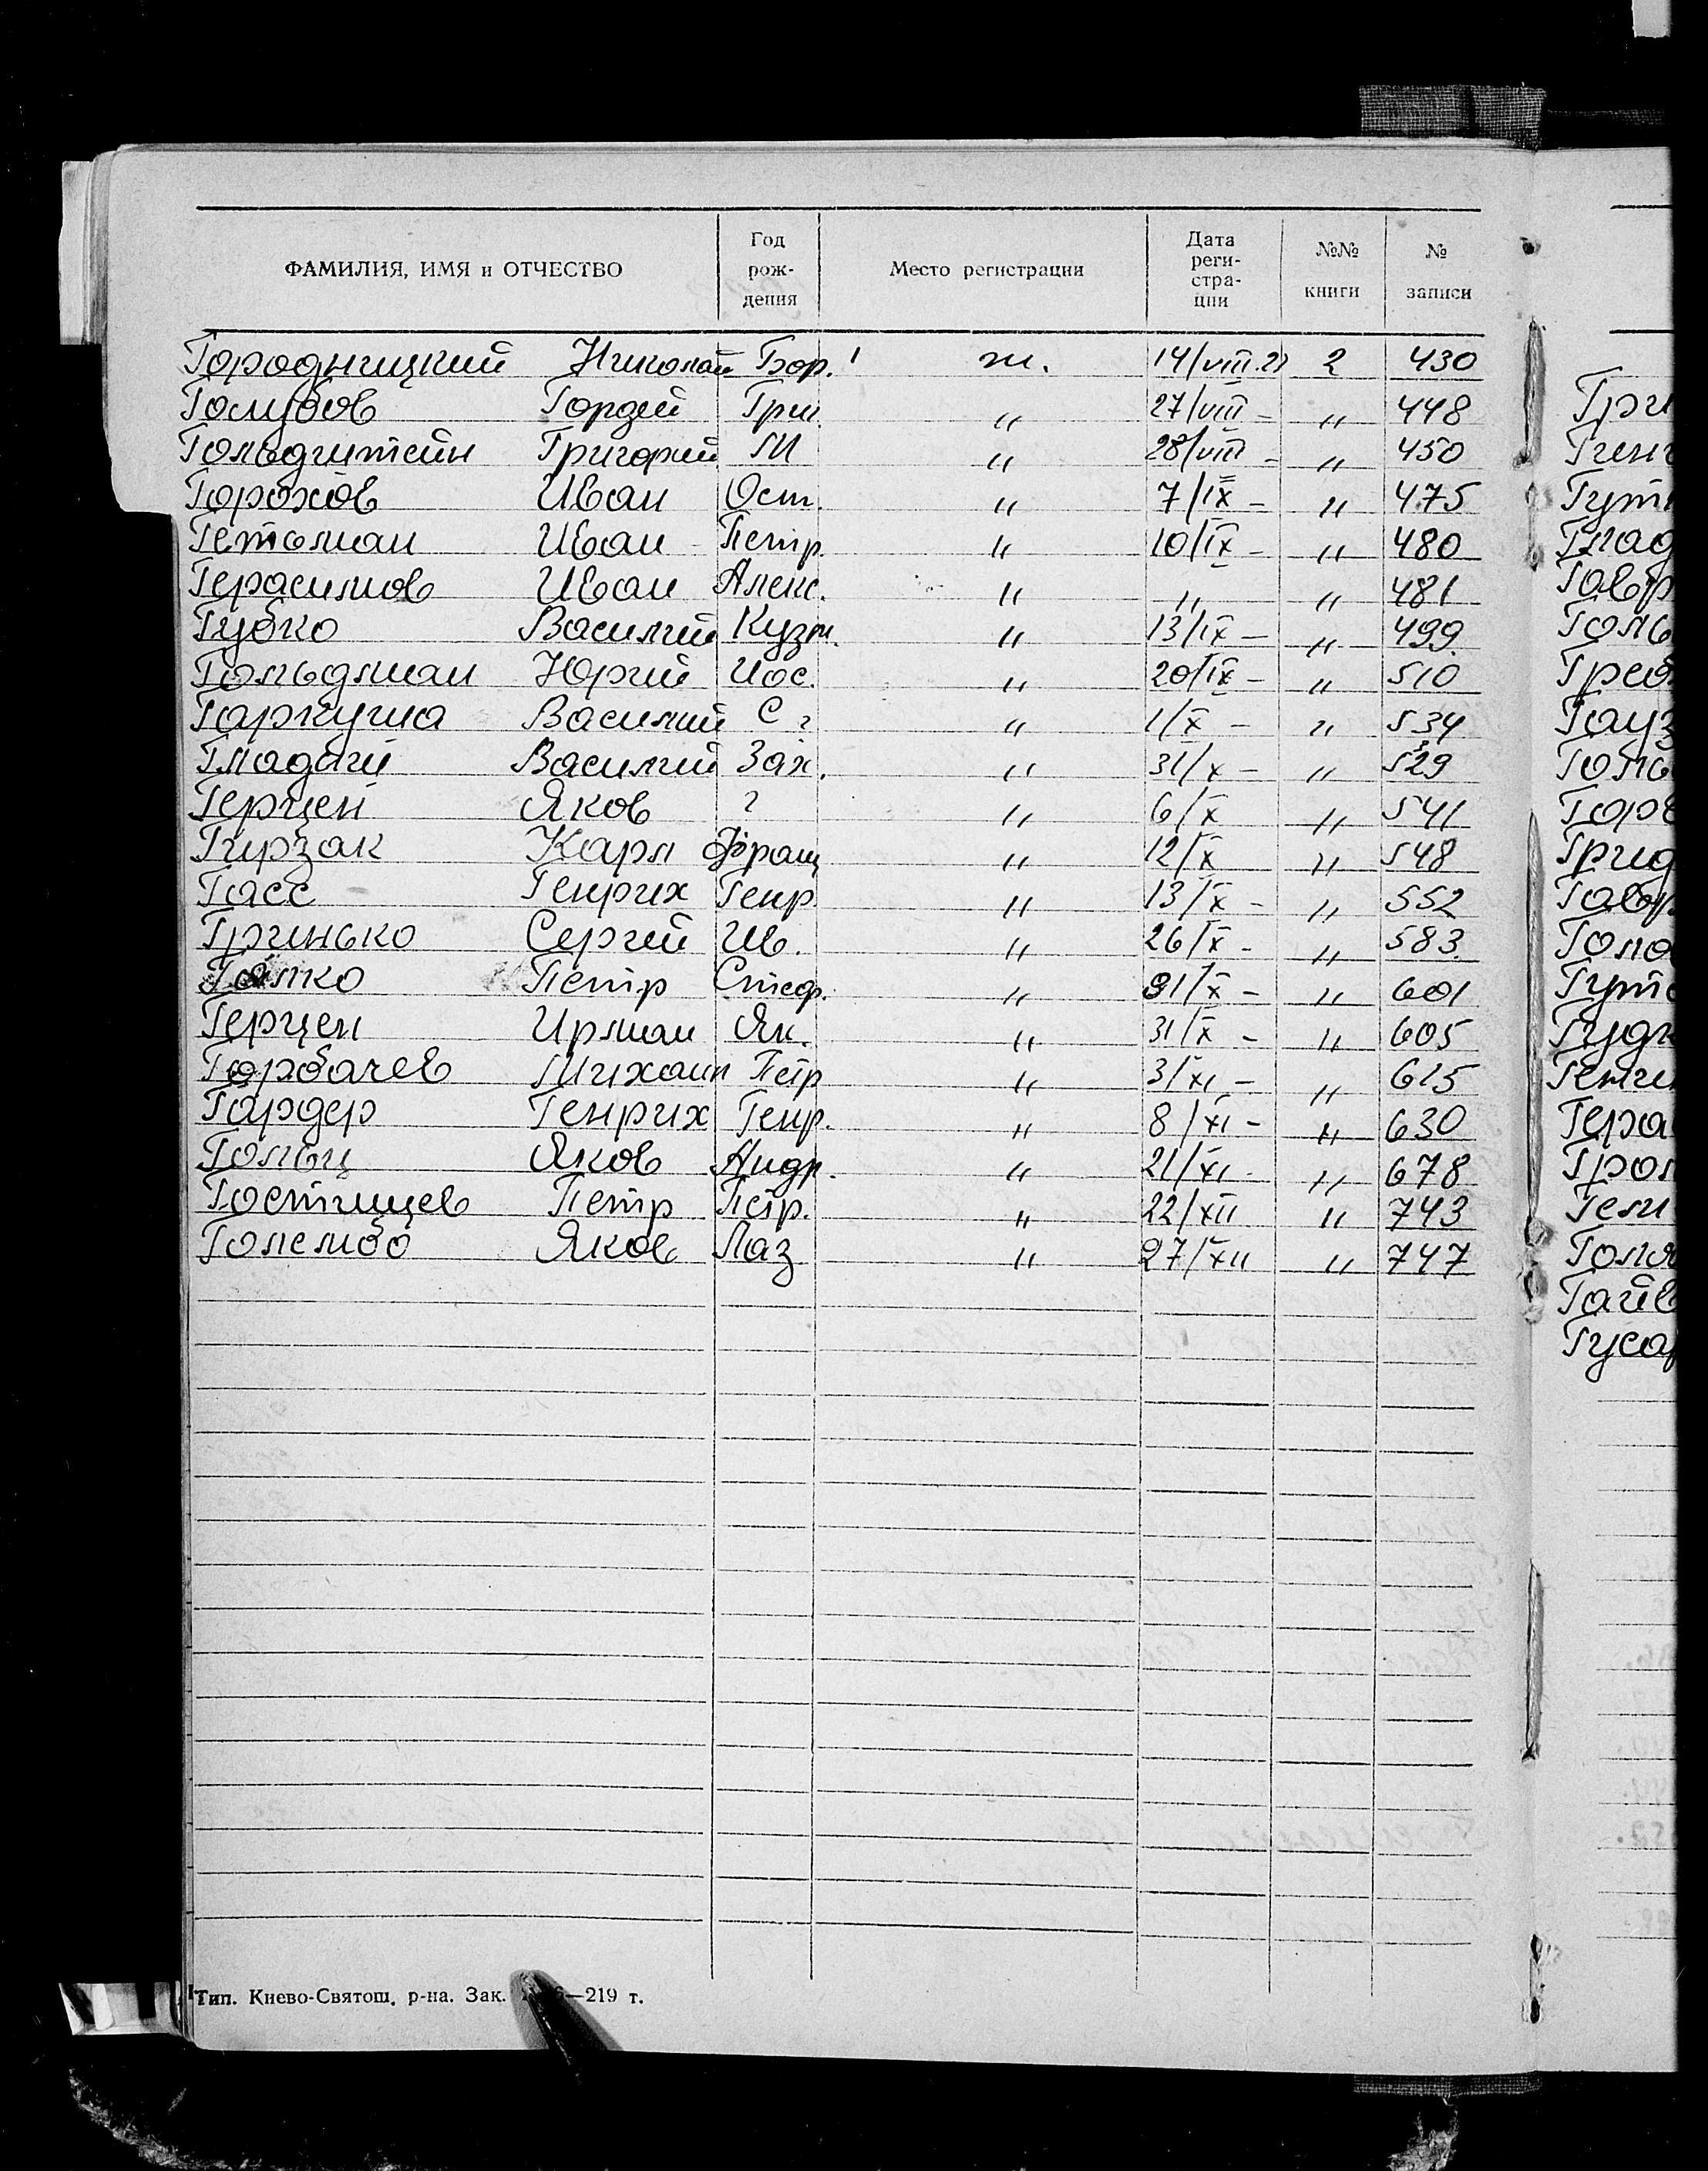 ФАМИЛИЯ, ИМЯ и ОТЧЕСТВО Год рож- дения Место регистрации Дата реги- стра- ции №№ книги № записи
Городницкий Николай Бор. ж. 14/VIII.21 2 430
Голубов Гордей Григ. " 27/VIII – " 448
Гольдштейн Григорий М " 28/VIII – " 450
Горохов Иван Ост. " 7/IX – " 475
Гетьман Иван Петр. " 10/IX – " 480
Герасимов Иван Алекс. " " " 481
Губко Василий Кузм. " 13/IX – " 499
Гольдман Юрий Иос. " 20/IX – " 510
Гаркуша Василий С ? " 1/X – " 534
Гладкий Василий Зах. " 31/X – " 529
Герцен Яков ? " 6/X " 541
Гирзак Карл Франц " 12/X " 548
Гасс Генрих Генр. " 13/X – " 552
Гринько Сергий Ив. " 26/X – " 583
Галко Петр Стеф. " 31/X – " 601
Герцен Ирман Як. " 31/X – " 605
Горбачев Михаил Петр " 3/XI – " 615
Гардер Генрих Генр. " 8/XI – " 630
Гольц Яков Андр. " 21/XI – " 678
Гостищев Петр Петр. " 22/XII " 743
Голембо Яков Лаз " 27/XII " 747
Тип. Киево-Святош. р-на. Зак. 6—219 т.